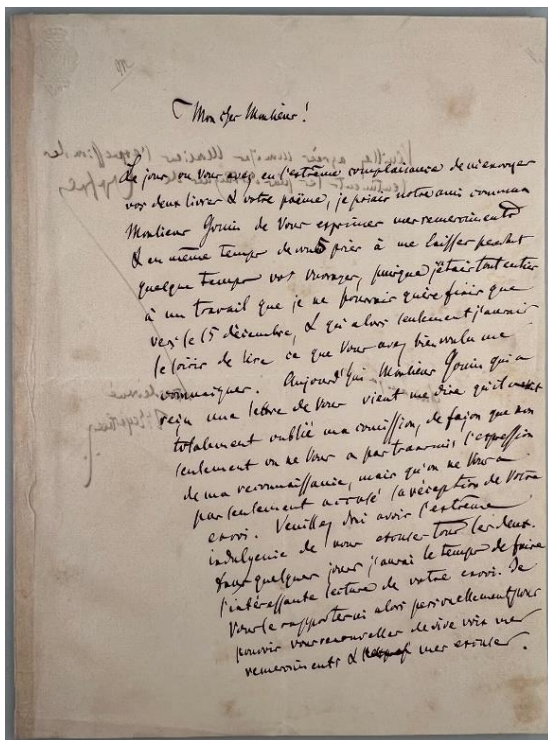 Mon cher Monsieur!
Le jour ou Vous avez eu l'extrême complaisance de m'envoyer
vos deux livres & votre poëme, je priais notre ami commun
Monsieur Gouin de Vous exprimer mes remerciments
& en même temps de vous prier à me laisser pendant
quelque temps vos ouvrages, puisque j'étais tout entier
à un travail que je ne pouvais guère finir que
vers le 15 décembre, & qu'alors seulement j'aurais
le loisir de lire ce que Vous avez bien voulu me
communiquer. Aujourd'hui Monsieur Gouin qui a
reçu une lettre de Vous vient me dire qu'il
totalement oublié ma comission, de façon que non
seulement on ne Vous a pas transmis l'expression
de ma reconnaissance, mais qu'on ne Vous a
pas seulement accusé la réception de Votre
envoi. Veuillez donc avoir l'extrême
indulgence de nous excuser tous les deux.
Dans quelques jours j'aurai le temps de faire
l'intéressante lecture de votre envoi. Je
Vous le rapporterai alors personellement pour
pouvoir vous renouveller de vive voix mes
remerciments & mes excuses.